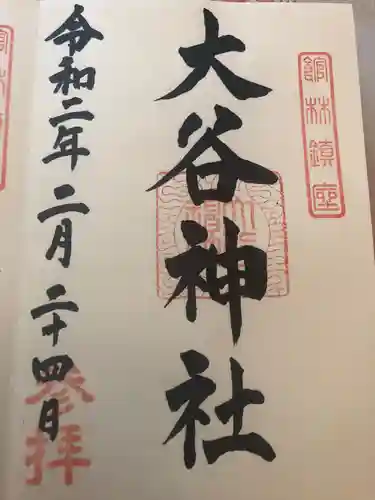 館林鎮座
大谷神社
令和二年二月二十四日
参拝